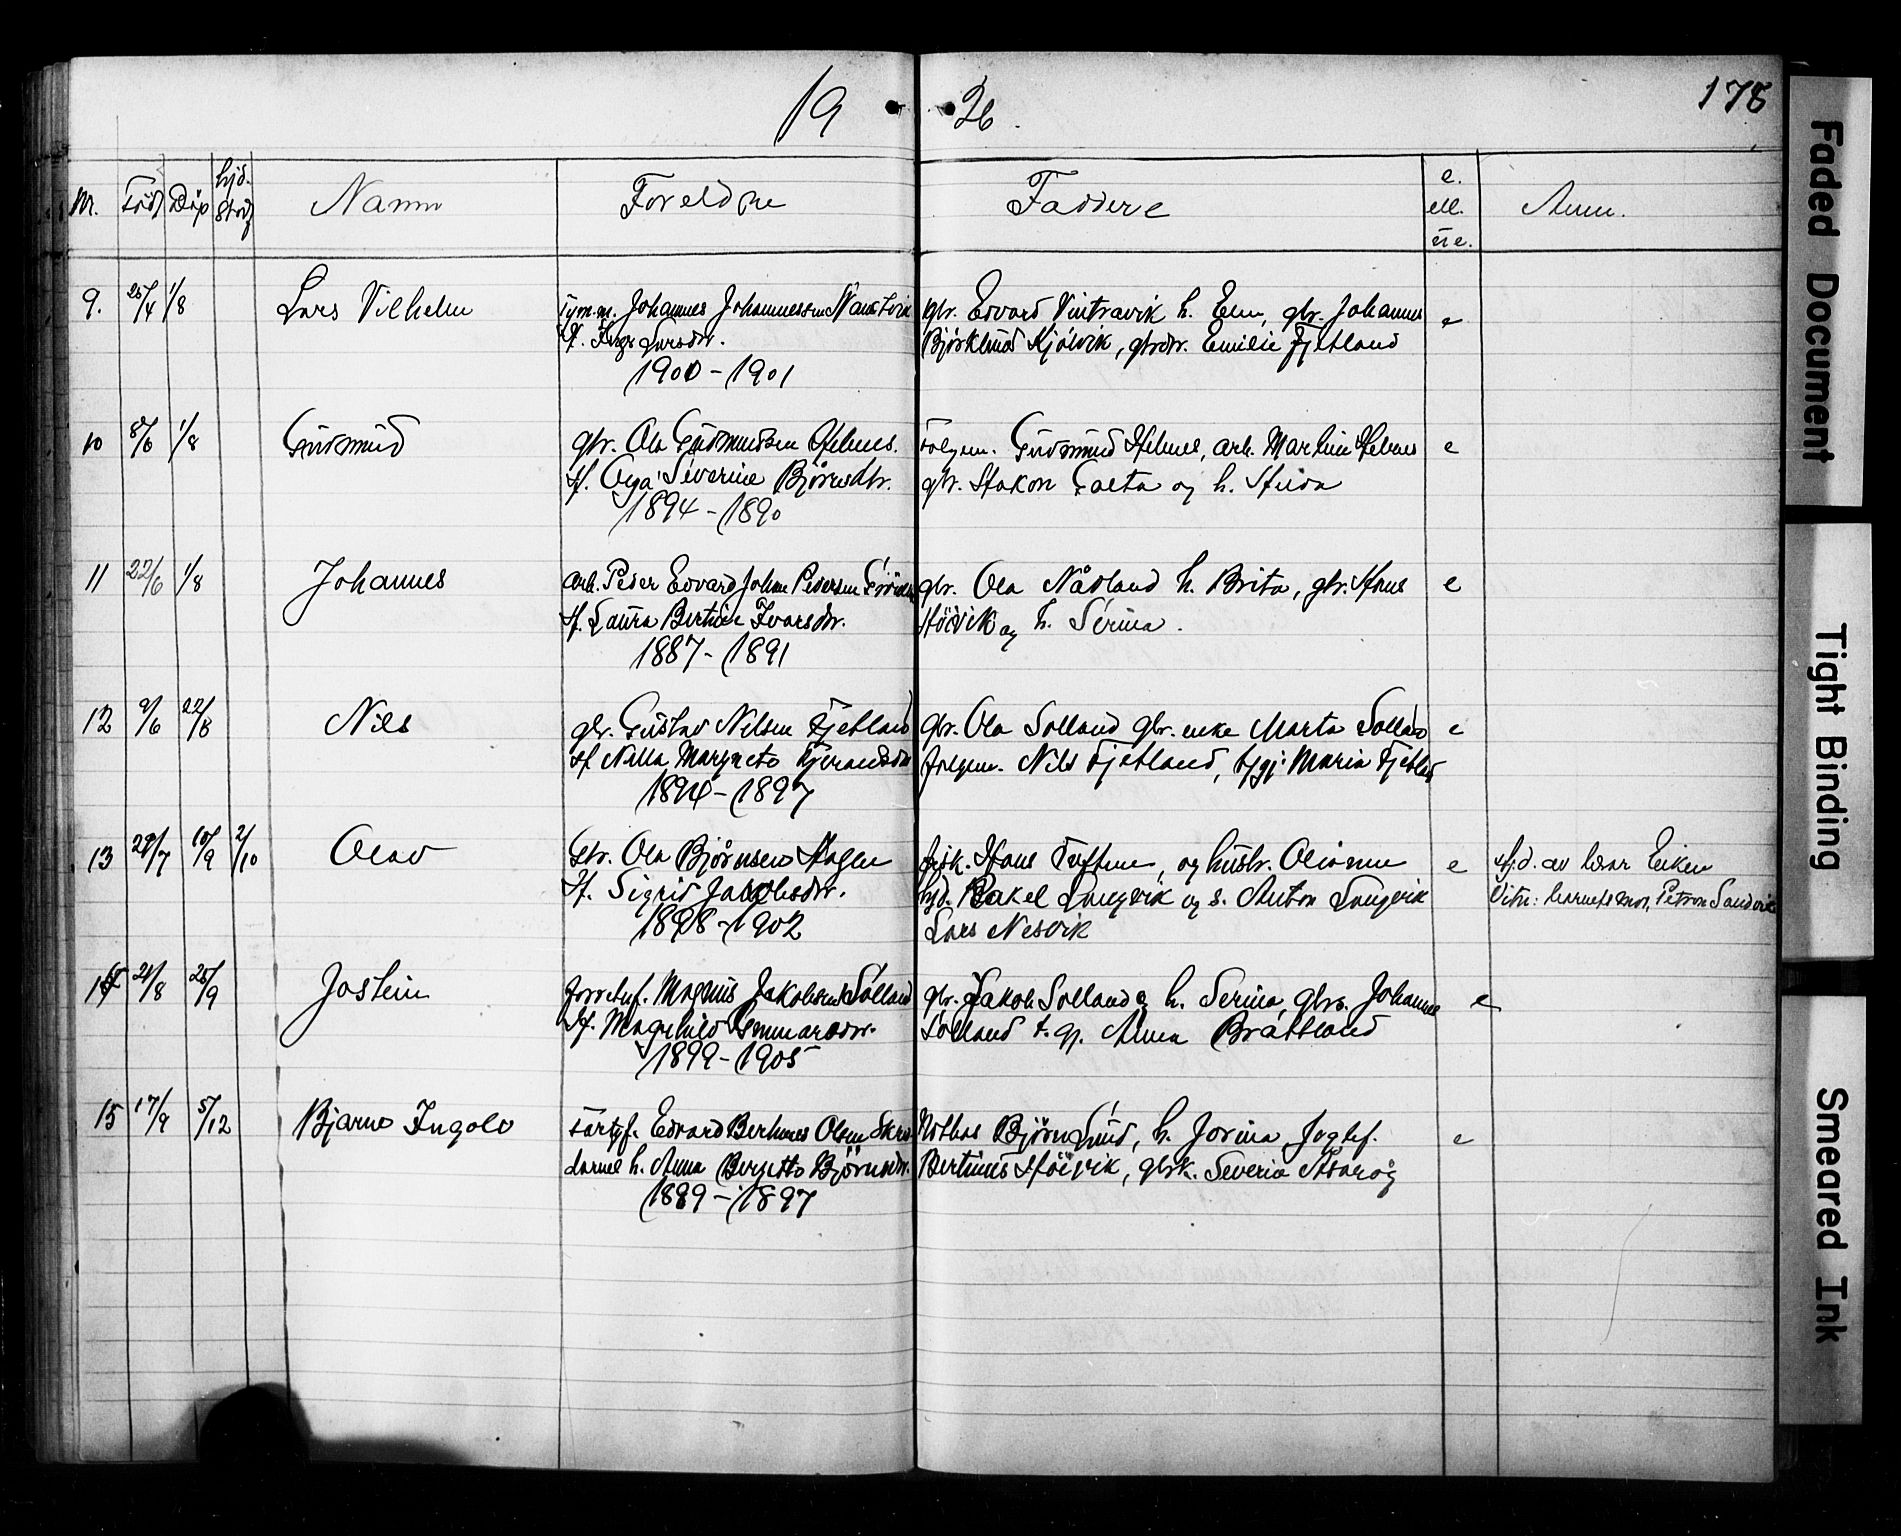 19 26.
178
Nr. Født Døp hjd. Stadf Namn Foreldre Faddere e. ell. ue. Anm.
9. 25/4 1/8 Lars Vilhelm
Johannes Johannessen
H. Inga Larsdtr.
1900 - 1901
gbr. Edvard Vintravik h. Elen, gbr. Johannes
Bjørklund Kjølvik, gbrdtr. Emilie Fjetland
e
10 8/6 1/8 Gudmund
gbr. Ola Gudmundsen Helmes.
H. Olga Severine Bjørnsdtr.
1894 - 1890
Folgem. Gudmund Helmes, arb. Martin Helmes
gbr. Hakon og h.
e
11 22/6 1/8 Johannes
arb. Peder Edvard Johan Pedersen
H. Laura Bertine Ivarsdtr.
1887 - 1891
gbr. Ola Nådland h. Brita, gbr. Hans
Høivik og h. Serina.
e
12 9/6 22/8 Nils
gbr. Gustav Nilsen Fjetland
H. Nilla Margreta
1894 - 1897
gbr. Ola Solland gbr. enke Marta Solland
folgem. Nils Fjetland, Maria Fjetland
e
13 29/7 10/9 2/10 Olav
gbr. Ola Bjørnsen Hagen
H. Sigrid Jakobsdtr.
1898 - 1902
fisk. Hans Tuftene, og hustr.
Rakel Langvik og s. Anton Langvik
Lars Nesvik
e
hjd. av lærar Eiken
Vitn: barnets mor, Petron Sandvik
14 21/8 25/9 Jostein
forretnf. Magnus Jakobsen Solland
H. Magnhild Gunnarsdtr.
1899 - 1905
gbr. Jakob Solland og h. Serina, gbrs. Johannes
Solland t. gj. Anna Bratland
e
15 17/9 5/12 Bjarne Ingolv
Fartyf. Edvard Bertinus Olsen
h. Anna Bergitte Bjørnsdtr.
1889 - 1897
Notbas Bjørn Lund, h. Jorina, Jagtef.
Bertinus Høivik, gbrk. Severia
e
Faded Document
Tight Binding
Smeared Ink